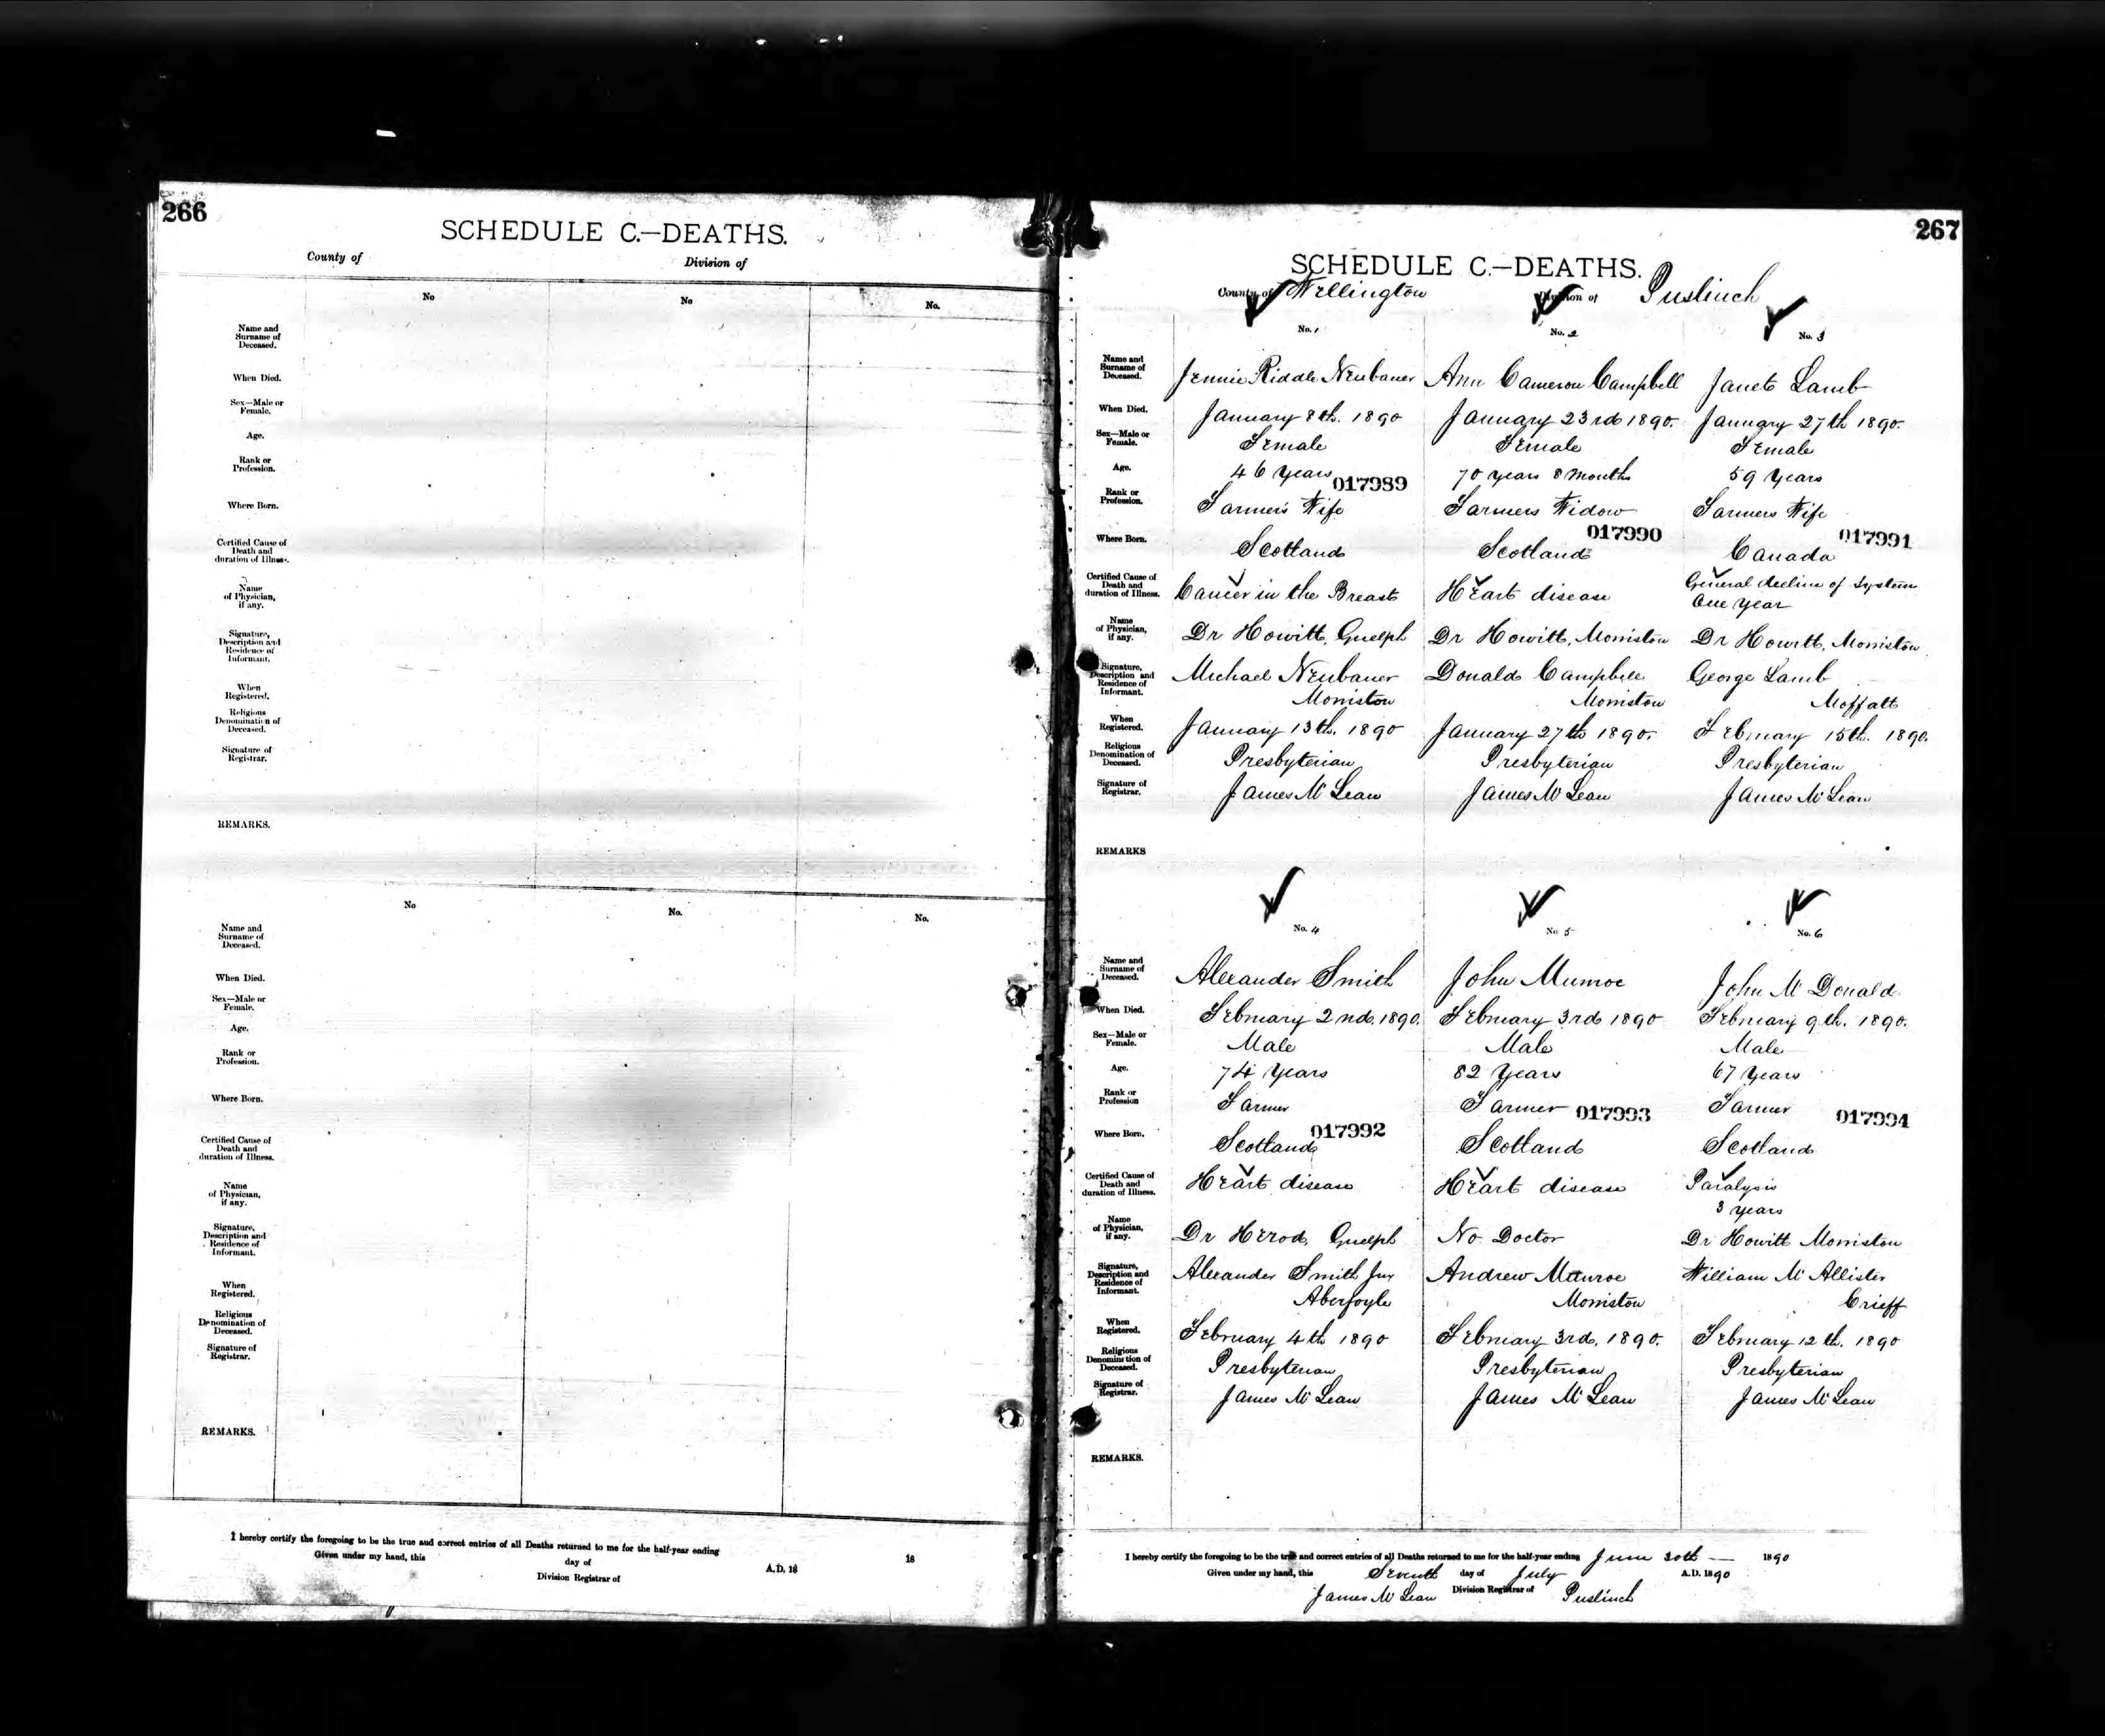 266
SCHEDULE C.—DEATHS.
County of Division of
No No No.
Name and
Surname of
Deceased.
When Died.
Sex—Male or
Female.
Age.
Rank or
Profession.
Where Born.
Certified Cause of
Death and
duration of Illness.
Name
of Physician,
if any.
Signature,
Description and
Residence of
Informant.
When
Registered.
Religious
Denomination of
Deceased.
Signature of
Registrar.
REMARKS.
No No. No.
Name and
Surname of
Deceased.
When Died.
Sex—Male or
Female.
Age.
Rank or
Profession.
Where Born.
Certified Cause of
Death and
duration of Illness.
Name
of Physician,
if any.
Signature,
Description and
Residence of
Informant.
When
Registered.
Religious
Denomination of
Deceased.
Signature of
Registrar.
REMARKS.
I hereby certify the foregoing to be the true and correct entries of all Deaths returned to me for the half-year ending 18
Given under my hand, this day of A.D. 18
Division Registrar of
267
SCHEDULE C.—DEATHS.
County of Wellington Division of Puslinch
No. 1 No. 2 No. 3
Name and
Surname of
Deceased.
Jennie Riddle Neubauer Ann Cameron Campbell Janet Lamb
When Died.
January 8th. 1890 January 23rd 1890. January 27th 1890.
Sex—Male or
Female.
Female Female Female
Age.
46 Years 70 years 8 Months 59 Years
017989
Rank or
Profession.
Farmer's Wife Farmers Widow Farmers Wife
017990 017991
Where Born.
Scotland Scotland Canada
Certified Cause of
Death and
duration of Illness.
Cancer in the Breast Heart disease General decline of System
One Year
Name
of Physician,
if any.
Dr Howitt, Guelph Dr Howitt, Morriston Dr Howitt, Morriston
Signature,
Description and
Residence of
Informant.
Michael Neubauer Donald Campbell George Lamb
Morriston Morriston Moffatt
When
Registered.
January 13th. 1890 January 27th 1890. February 15th. 1890.
Religious
Denomination of
Deceased.
Presbyterian Presbyterian Presbyterian
Signature of
Registrar.
James McLean James McLean James McLean
REMARKS
No. 4 No 5 No. 6
Name and
Surname of
Deceased.
Alexander Smith John Munroe John McDonald
When Died.
February 2nd, 1890. February 3rd 1890 February 9th. 1890.
Sex—Male or
Female.
Male Male Male
Age.
74 Years 82 Years 67 Years
Rank or
Profession
Farmer Farmer Farmer
017992 017993 017994
Where Born.
Scotland Scotland Scotland
Certified Cause of
Death and
duration of Illness.
Heart disease Heart disease Paralysis
3 years
Name
of Physician,
if any.
Dr Herod, Guelph No Doctor Dr Howitt Morriston
Signature,
Description and
Residence of
Informant.
Alexander Smith Jnr Andrew Munroe William McAllister
Aberfoyle Morriston Crieff
When
Registered.
February 4th 1890 February 3rd, 1890. February 12th. 1890
Religious
Denomination of
Deceased.
Presbyterian Presbyterian Presbyterian
Signature of
Registrar.
James McLean James McLean James McLean
REMARKS.
I hereby certify the foregoing to be the true and correct entries of all Deaths returned to me for the half-year ending June 30th — 1890
Given under my hand, this Seventh day of July A.D. 1890
James McLean Division Registrar of Puslinch